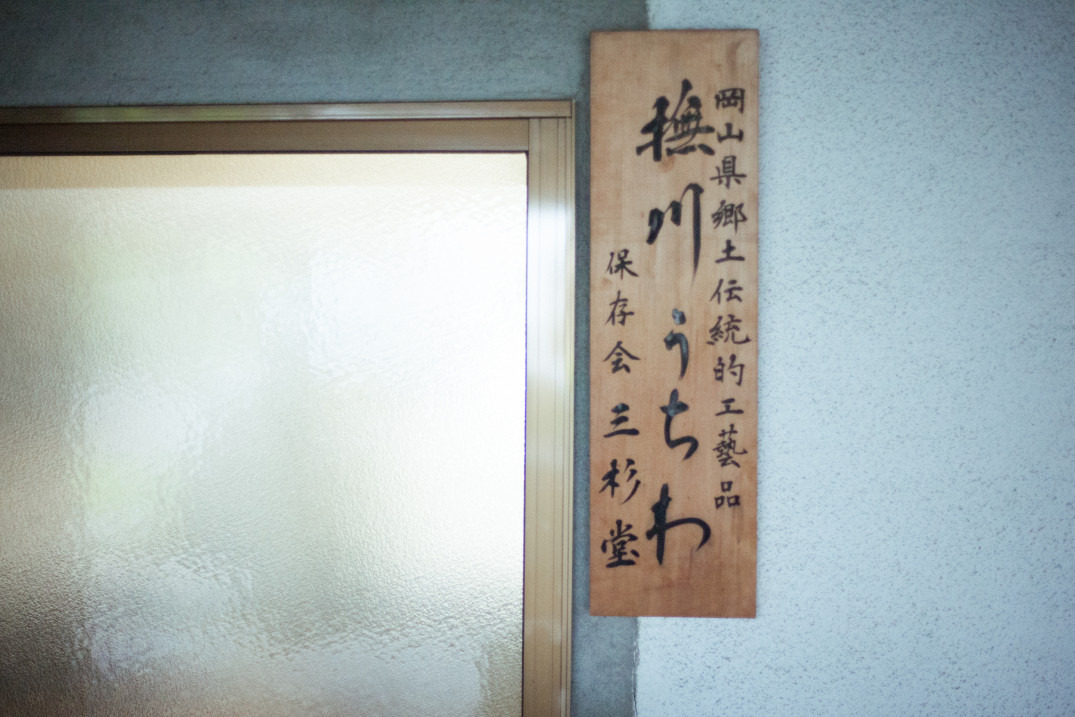 岡山県郷土伝統的工藝品
撫川うちわ
保存会三杉堂